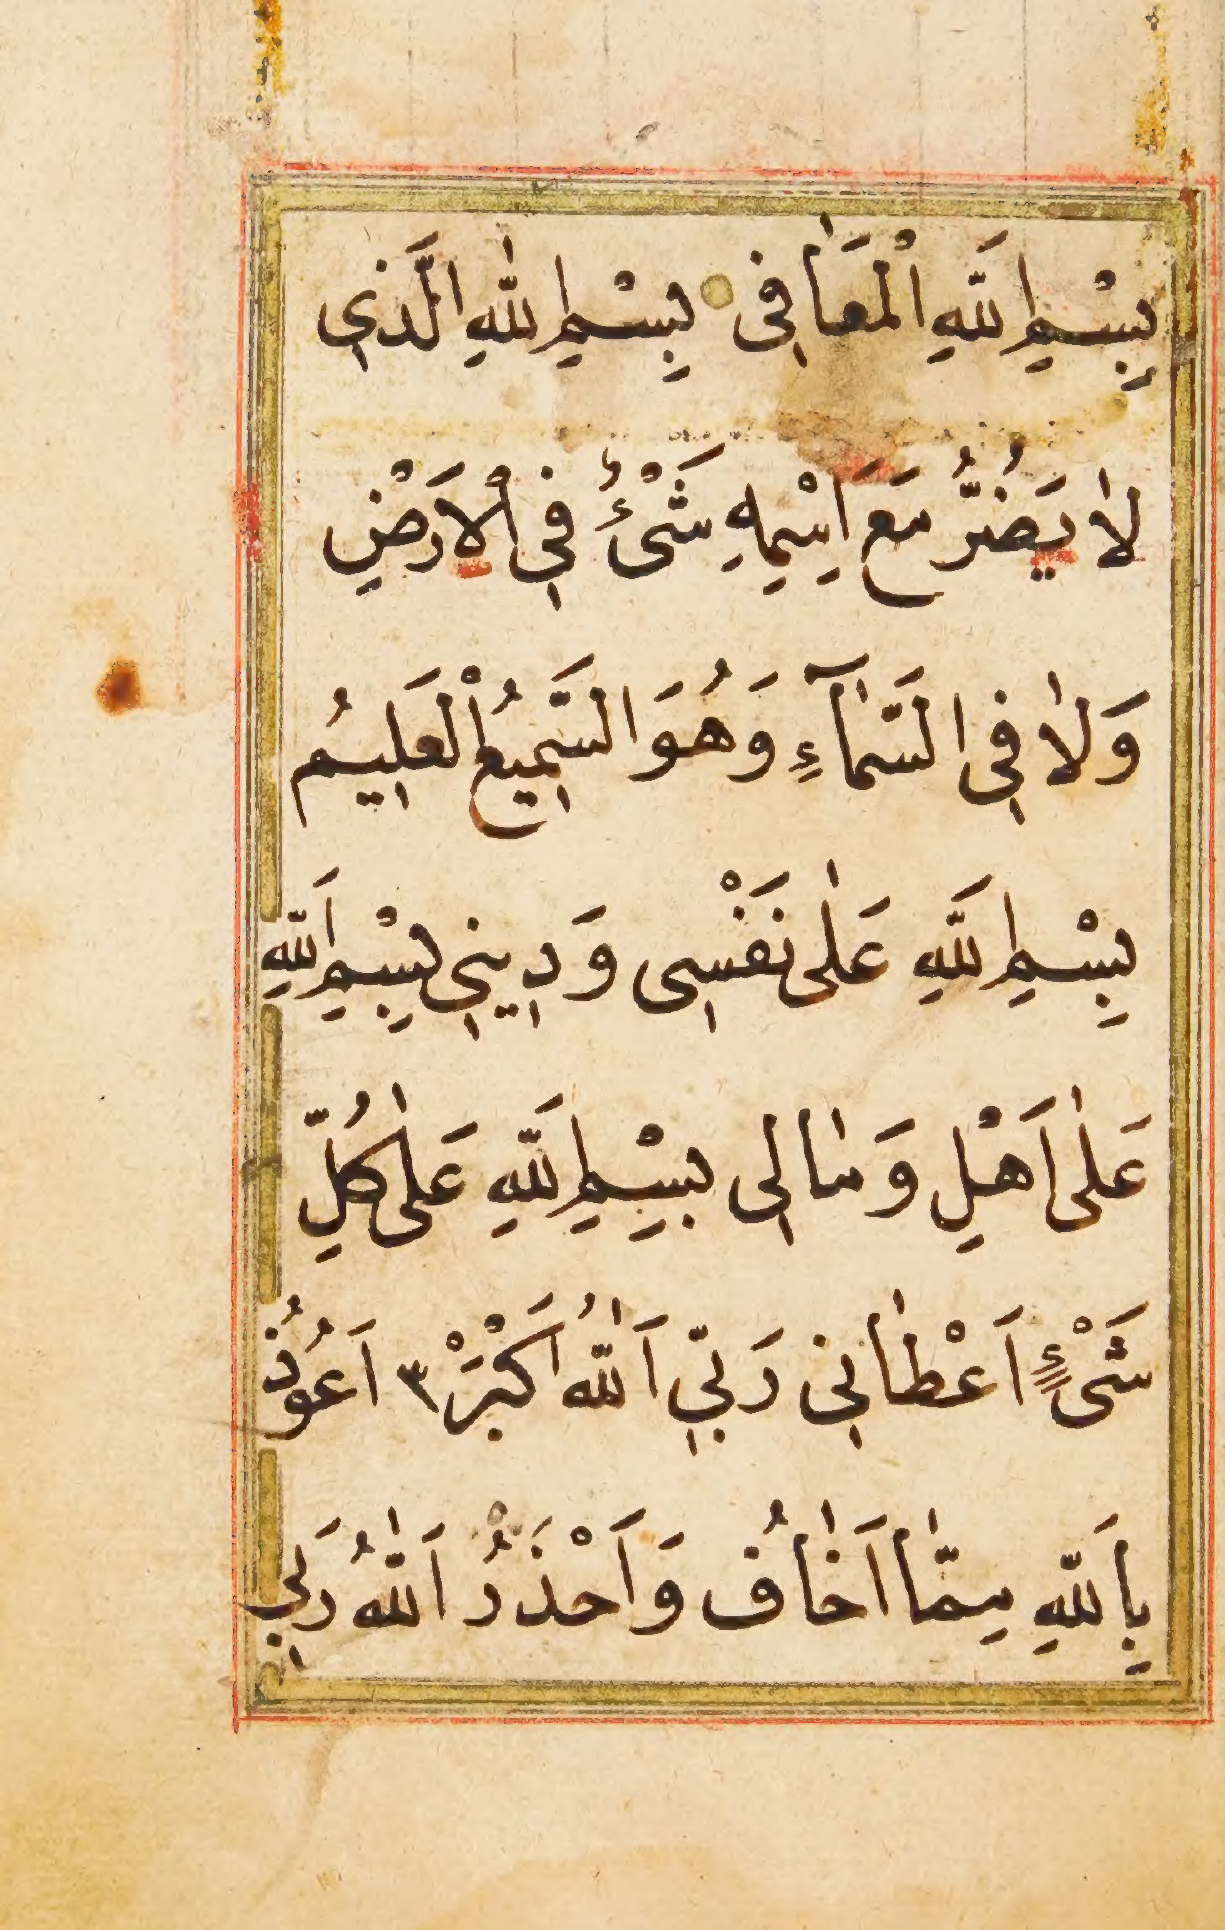 بِسْمِ اللَّهِ الْمَعَافِى بِسْمِ اللهِ الَّذِي
لَا يَضُرُّ مَعَ اِسْمِهِ شَىْءٌ فِي الْاَرْضِ
وَلَا فِى السَّمَآءِ وَهُوَ السَّمِيعُ الْعَلِيمُ
بِسْمِ اللَّهِ عَلٰى نَفْسِى وَدِينِي بِسْمِ اللَّهِ
عَلٰى اَهْلِ وَمَالِى بِسْمِ اللَّهِ عَلٰى كُلِّ
شَىْءٍ اَعْطٰانِي رَبِّي اَللّٰهُ اَكْبَرْ ٣ اَعُوذُ
بِاللَّهِ مِمّٰا اَخٰافُ وَاَحْذَرُ اَللّٰهُ رَبِّي